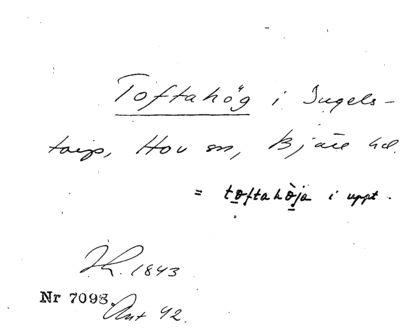 Toftahög i Ingels-
torp, Hov sn, Bjäre hd.
= toftahòja i uppt.
1843
Nr 7098. Ant 42.